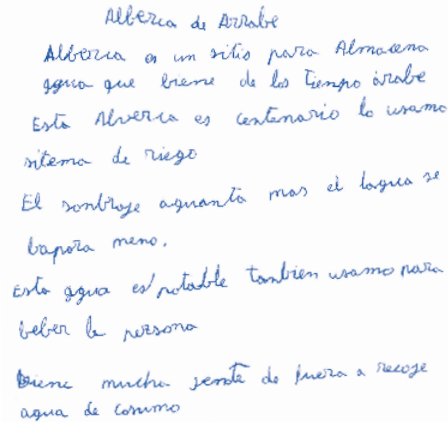 Alberca de Arrabe
Alberca es un sitio para Almacena
agua que biene de los tiempo árabe
Esta Alverca es centenario lo usamo
sitema de riego
El sonbroje aguanta mas el lagua se
bapora meno.
Esta agua es potable tanbien usamo para
beber la persona
Biene mucha jente de fuera a recoje
agua de cosumo